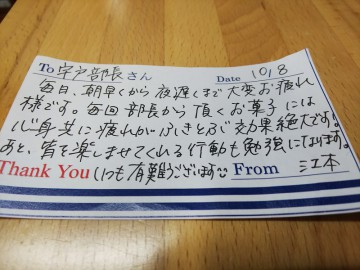 To 宍戸部長さん Date 10/8
毎日、朝早くから夜遅くまで大変お疲れ
様です。毎回部長から頂くお菓子には
心身共に疲れがふきとぶ効果絶大です!
あと、皆を楽しませてくれる行動も勉強になります。
Thank You いつも有難うございます☺ From 江本